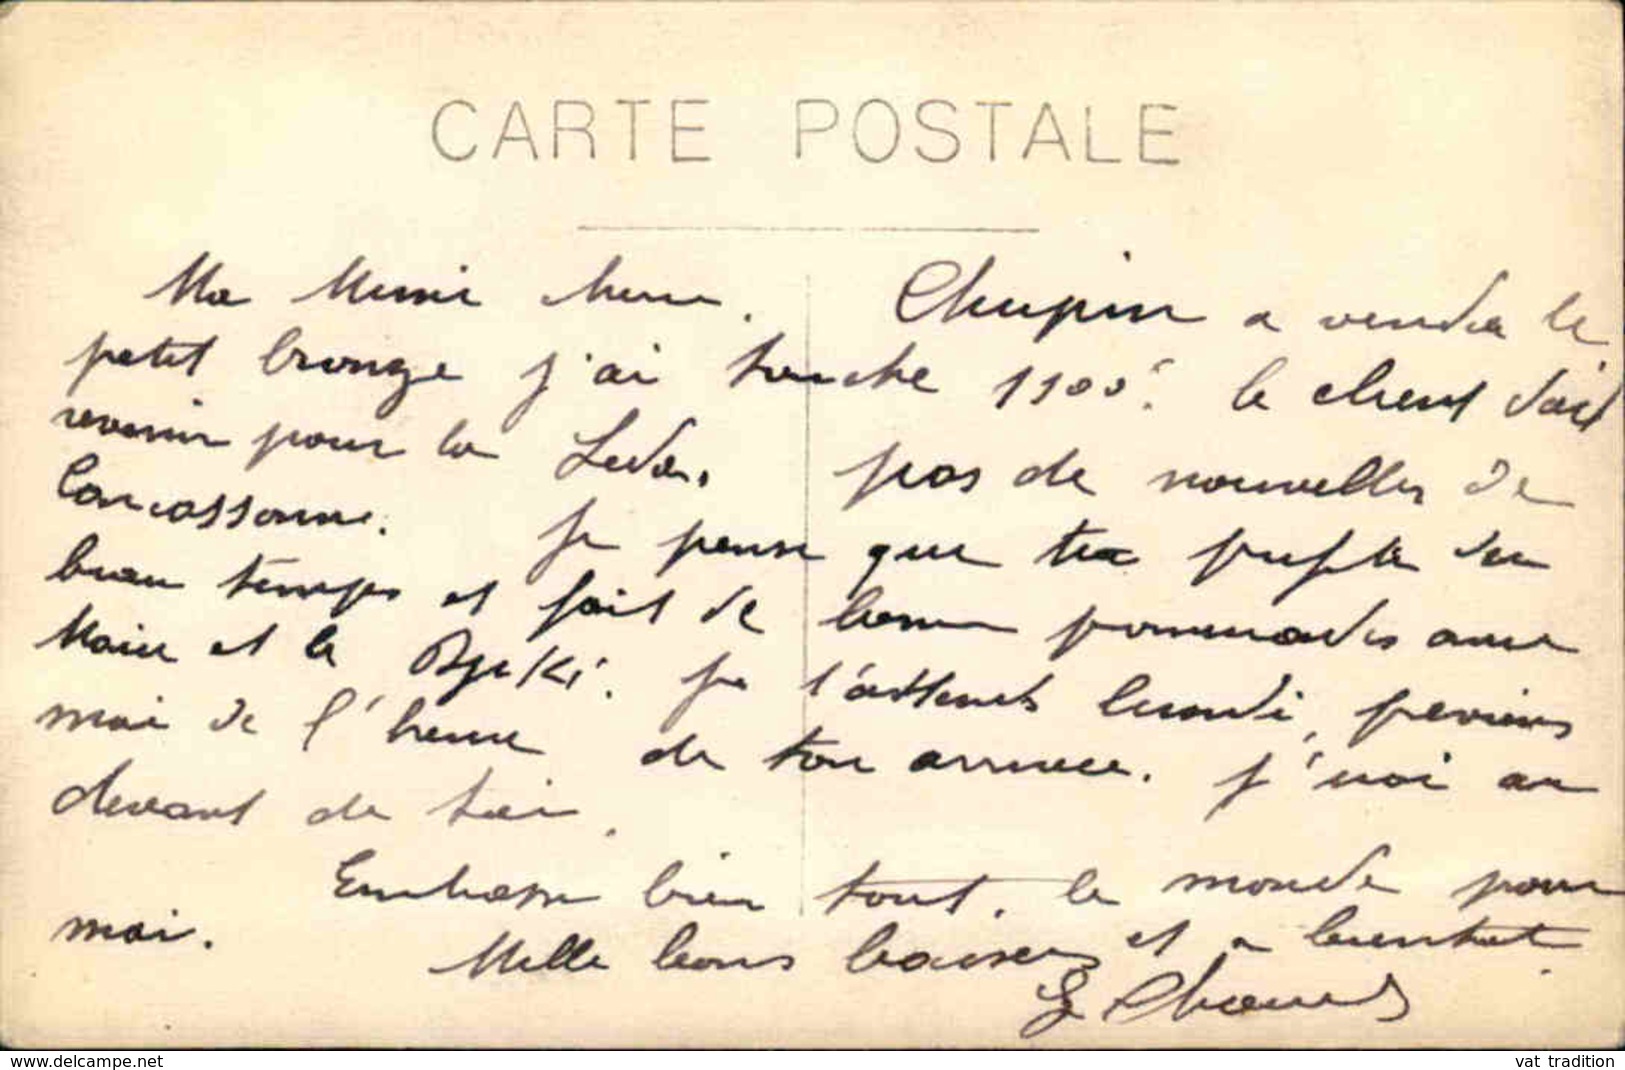 CARTE POSTALE
Ma Mimie cherie. Chupin a vendu le
petit bronze j'ai touche 1100 f. le client doit
revenir pour la Leda. pas de nouvelles de
Carcassonne. Je pense que tu profite du
beau temps et fait de bonne promenades avec
Marie et le je t'attends lundi, previens
moi de l'heure de ton arrivee. j'irai au
devant de toi.
Embrasse bien tout le monde pour
moi.
Mille bons baisers et a bientot.
www.delcampe.net
vat_tradition